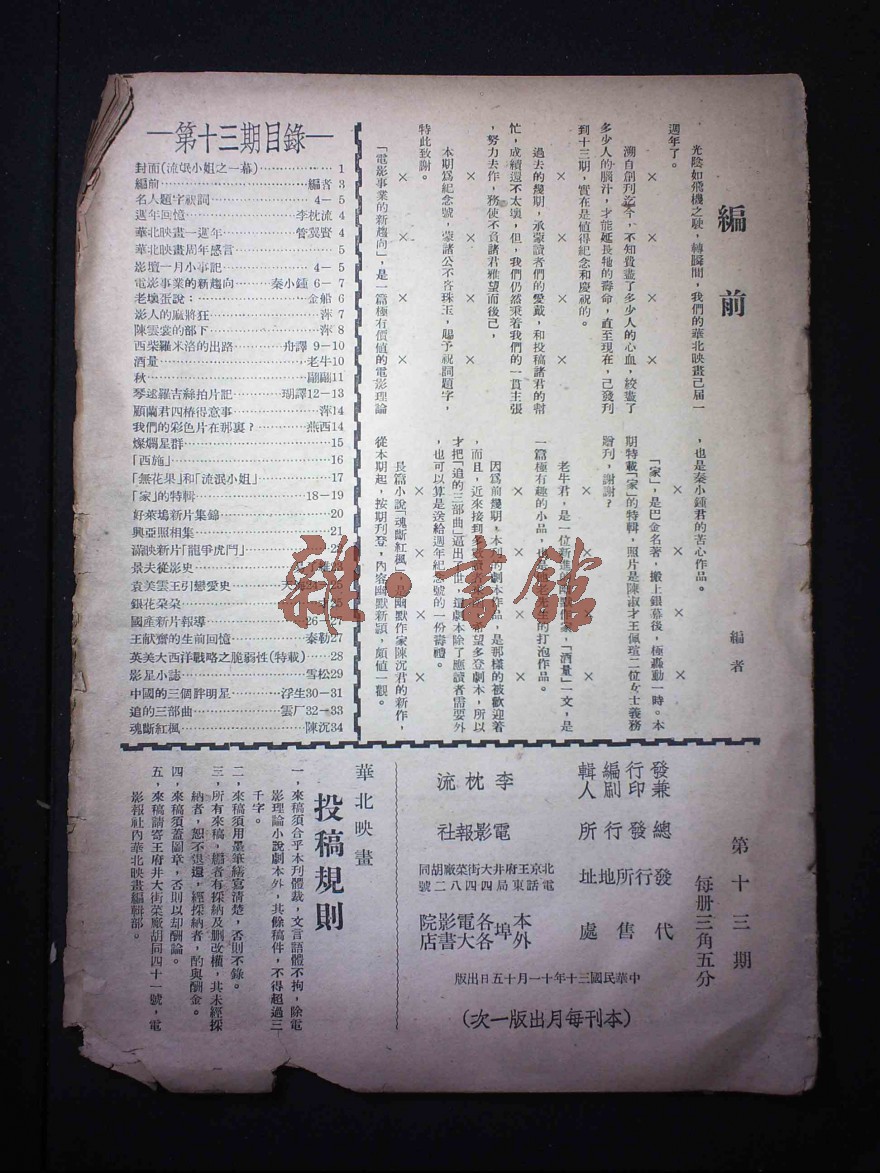 編前
編者
光陰如飛機之駛，轉瞬間，我們的華北映畫已届一
週年了。
溯自創刊迄今，不知費盡了多少人的心血，絞盡了
多少人的腦汁，才能延長牠的壽命，直至現在，已發刊
到十三期，實在是値得紀念和慶祝的。
過去的幾期，承蒙讀者們的愛戴，和投稿諸君的幇
忙，成績還不太壞，但，我們仍然秉着我們的一貫主張
，努力去作，務使不負諸君雅望而後已，
本期爲紀念號，蒙諸公不吝珠玉，賜予祝詞題字，
特此致謝。
× × × ×
「電影事業的新趨向」，是一篇極有價値的電影理論
，也是秦小鍾君的苦心作品。
× × × ×
「家」，是巴金名著，搬上銀幕後，極轟動一時。本
期特載「家」的特輯，照片是陳淑才王佩瑄二位女士義務
贈刊，謝謝？
× × × ×
老牛君，是一位新進的幽默作家，「酒量」一文，是
一篇極有趣的小品，也是
的打泡作品。
× × × ×
因爲前幾期，本刊的劇本作品，是那樣的被歡迎着
，而且，近來接到多數讀者來函，希望多登劇本，所以
才把「追的三部曲」逼出問世，這劇本除了應讀者需要外
，也可以算是送給週年紀念號的一份壽禮。
× × × ×
長篇小說「魂斷紅楓」，是幽默作家陳沉君的新作，
從本期起，按期刊登，內容幽默新穎，頗値一觀。
—第十三期目錄—
封面(流氓小姐之一幕)⋯⋯1
編前⋯⋯編者 3
名人題字祝詞⋯⋯4－5
週年回憶⋯⋯李枕流 4
華北映畫一週年⋯⋯管翼賢 4
華北映畫周年感言⋯⋯5
影壇一月小事記⋯⋯4－5
電影事業的新趨向⋯⋯秦小鍾 6－7
老壞蛋說：⋯⋯金船 6
影人的麻將狂⋯⋯萍 7
陳雲裳的部下⋯⋯萍 8
西柴羅米洛的出路⋯⋯舟譯 9－10
酒量⋯⋯老牛10
秋⋯⋯翩翩11
琴逑羅吉絲拍片記⋯⋯瑚譯12－13
顧蘭君四樁得意事⋯⋯萍14
我們的彩色片在那裏？⋯⋯燕西14
燦爛星群⋯⋯15
「西施」⋯⋯16
「無花果」和「流氓小姐」⋯⋯17
「家」的特輯⋯⋯18－19
好萊塢新片集錦⋯⋯20
興亞照相集⋯⋯21
滿映新片「龍爭虎鬥」⋯⋯
景夫從影史⋯⋯
袁美雲王引戀愛史⋯⋯
銀花朶朶⋯⋯25
國產新片報導⋯⋯26－27
王献齋的生前回憶⋯⋯秦勒27
英美大西洋戰略之脆弱性(特載)⋯⋯28
影星小誌⋯⋯雪松29
中國的三個胖明星⋯⋯浮生30－31
追的三部曲⋯⋯雲厂32－33
魂斷紅楓⋯⋯陳沉34
第十三期
每册三角五分
發行兼編輯印刷人 李枕流
總發行所 電影報社
發行所地址 北京王府井大街菜廠胡同
電話東局四四八二號
代售處 本埠各電影院
外埠各大書店
中華民國三十年十一月十五日出版
(本刊每月出版一次)
華北映畫
投稿規則
一，來稿須合乎本刊體裁，文言語體不拘，除電
影理論小說劇本外，其餘稿件，不得超過三
千字。
二，來稿須用墨筆繕寫清楚，否則不錄。
三，所有來稿，編者有採納及刪改權，其未經採
納者，恕不退還，經採納者，酌與酬金。
四，來稿須蓋圖章，否則以却酬論。
五，來稿請寄王府井大街菜廠胡同四十一號，電
影報社內華北映畫編輯部。
雜·書館